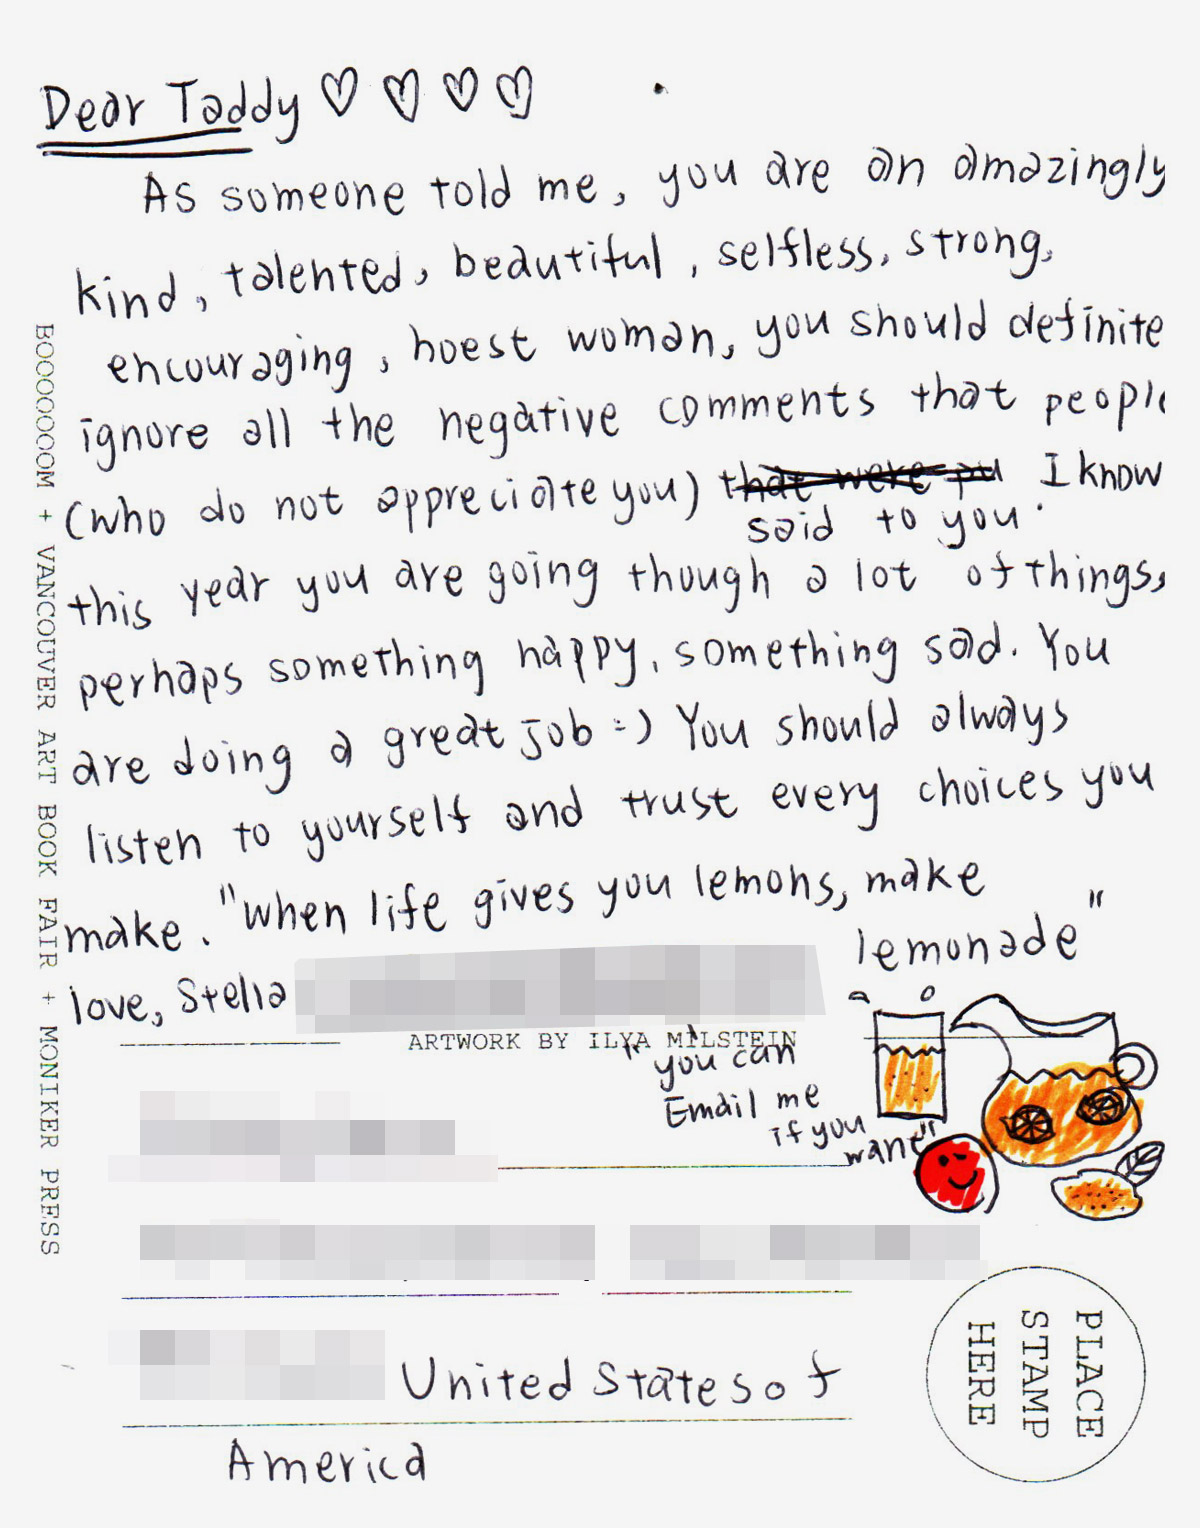 Dear Taddy ♡ ♡ ♡ ♡
As someone told me, you are an amazingly
kind, talented, beautiful, selfless, strong,
encouraging, hoest woman, you should definite
ignore all the negative comments that people
(who do not appreciate you) that were pu I know
said to you.
this year you are going though a lot of things,
perhaps something happy, something sad. You
are doing a great job =) You should always
listen to yourself and trust every choices you
make. "When life gives you lemons, make
lemonade"
love, Stella
ARTWORK BY ILYA MILSTEIN
"you can
Email me
if you
want"
United States of
America
BOOOOOOOM + VANCOUVER ART BOOK FAIR + MONIKER PRESS
PLACE
STAMP
HERE